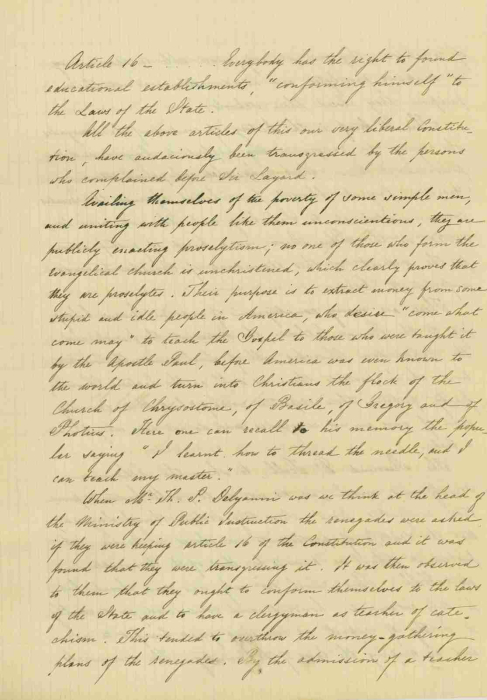 Article 16 - . . . . . Everybody has the right to found
educational establisaments, "conforming himself" to
the Laws of the State.
All the above articles of this our very liberal Constitu-
tion, have audaciously been transgrassed by the persons
who complained before Sir Layard.
Availing themselves of the poverty of some simple men,
and uniting with people like them unconscientious, they are
publicly enacting proselytism; no one of those who form the
evangelical church is unchristened, which clearly proves that
they are proselytes. Their purpose is to extract money from some
stupid and idle people in America, who desire "come what
come may" to teach the Gospel to those who were taught it
by the Apostle Paul, before America was even known to
the world and turn into Christians the flock of the
Church of Chrysostome, of Basile, of Gregory and of
Photius. Here one can recall to his memory the popu-
lar saying "I learnt, how to thread the needle, and I
can teach my master."
When Mr. Th. P. Delyanni was we think at the head of
the Ministry of Public Instruction the renegades were asked
if they were keeping article 16 of the Constitution and it was
found that they were transgresing it. It was then observed
to them that they ought to conform themselves to the laws
of the State and to have a clergyman as teacher of cate-
chism. This tended to overthrow the money-gathering
plans of the renegades. By the admission of a teacher